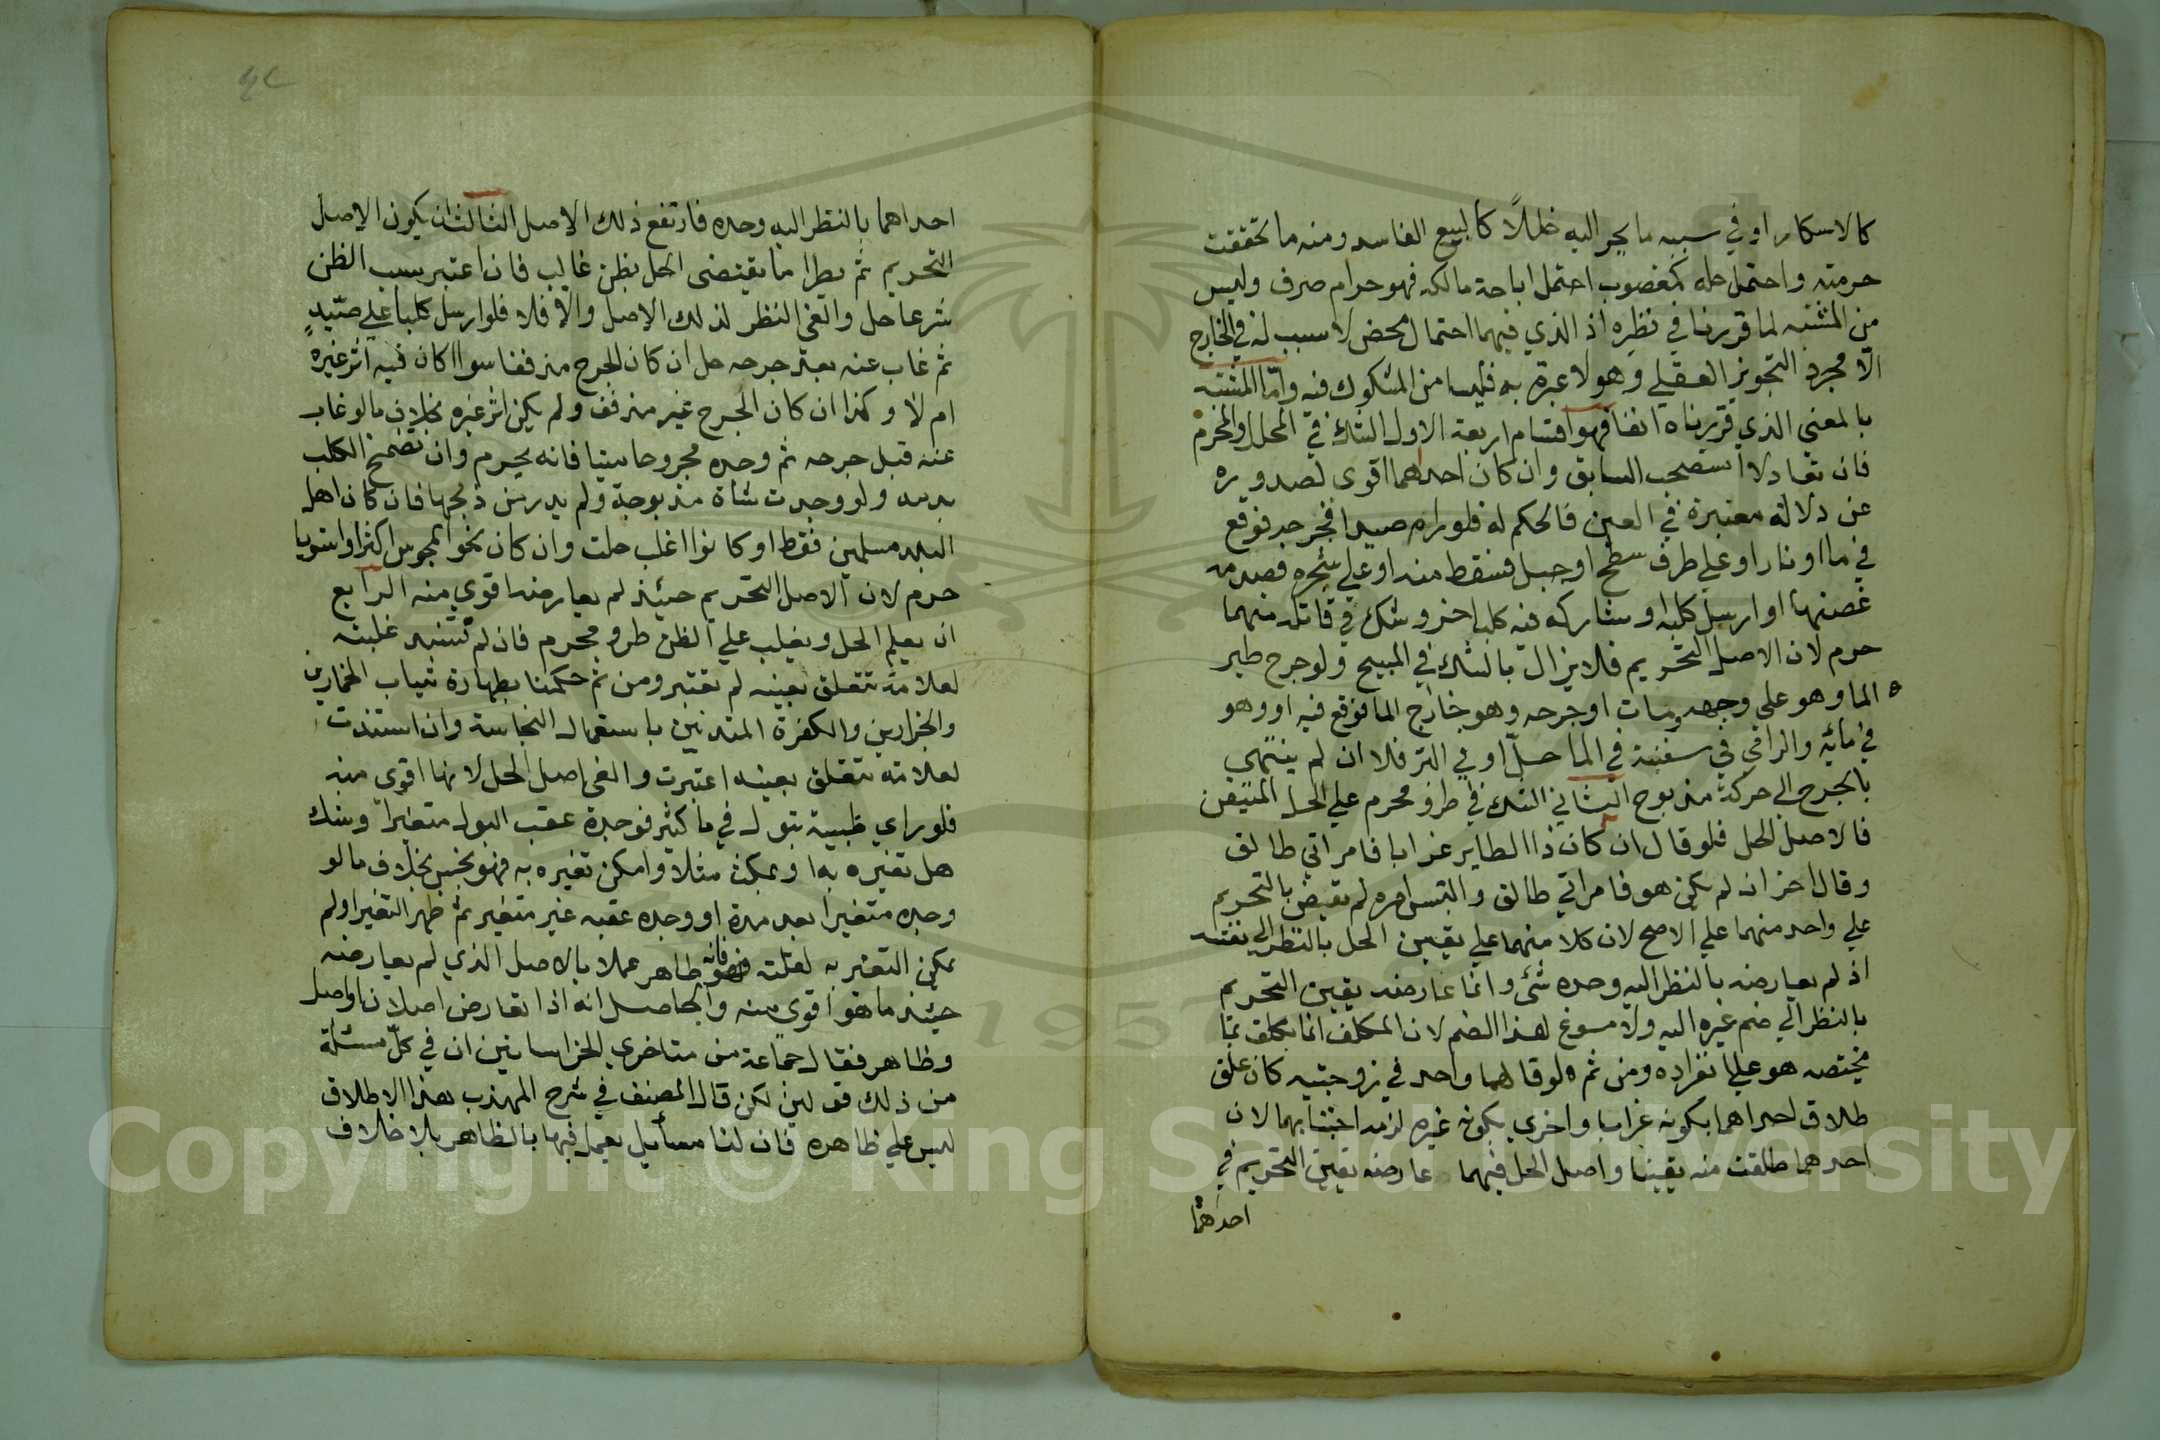 كالاسكار او في سببه ما يجر اليه خللاً كالبيع الفاسد ومنه ما تحققت
حرمته واحتمل حله كمغصوب احتمل اباحة مالكه فهو حرام صرف وليس
من المشتبه لما قررنا في نظره اذ الذي فيهما احتمال محض لا سبب له في الخارج
الا مجرد التجويز العقلي وهو لا عبرة به فليسا من المشكوك فيه واما المشتبه
بالمعني الذي قررناه انفا فهو اقسام اربعة الاول الشك في المحلل والمحرم
فان تعادلا استصحب السابق وان كان احدهما اقوى لصدوره
عن دلالة معتبرة في العين فالحكم له فلو رام صيدا فجرحه فوقع
في ما او نار او علي طرف سطح او جبل فسقط منه او علي شجره فصدمه
غصنها او ارسل كلبه او شاركه فيه كلب اخر وشك في قاتله منهما
حرم لان الاصل التحريم فلا يزال بالشك في المبيح ولو جرح طير
الما وهو علي وجهه ومات او جرحه وهو خارج الما فوقع فيه او وهو
في مائه والرامي في سفينة في الما حلّ او في البر فلا ان لم ينتهي
بالجرح الي حركة مذبوح الثاني الشك في طرو محرم علي الحل المتيقن
فالاصل الحل فلو قال ان كان ذا الطاير غرابا فامراتي طالق
وقال اخر ان لم يكن هو فامراتي طالق والتبس امره لم نقض بالتحريم
علي واحد منهما علي الاصح لان كلا منهما علي يقين الحل بالنظر الي نفسه
اذ لم يعارضه بالنظر اليه وحده شئ وانما عارضه يقين التحريم
بالنظر الي ضم غيره اليه ولا مسوغ لهذا الضم لان المكلف انما يكلف بما
يختصه هو علي انفراده ومن ثم لو قالهما واحد في زوجتيه كان علق
طلاق احداهما بكونه غرابا واخري بكونه غيره لزمه اجتنابهما لان
احدهما طلقت منه يقينا واصل الحل فيهما عارضه يقين التحريم في
احداهما
احداهما بالنظر اليه وحده فارتفع ذلك الاصل الثالث ان يكون الاصل
التحريم ثم يطرا ما يقتضي الحل بظن غالب فان اعتبر سبب الظن
شرعا حل والغي النظر لذلك الاصل والا فلا فلو ارسل كلبا علي صيدٍ
ثم غاب عنه بعد جرحه حل ان كان الجرح مذففا سوا اكان فيه اثر غيره
ام لا وكذا ان كان الجرح غير مذفف ولم يكن اثر غيره بخلاف ما لو غاب
عنه قبل جرحه ثم وجده مجروحا ميتا فانه يحرم وان تضمخ الكلب
بدمه ولو وجدت شاة مذبوحة ولم يدر من ذبحها فان كان اهل
البلد مسلمين فقط او كانوا اغلب حلت وان كان نحو المجوس اكثر او استويا
حرم لان الاصل التحريم حينئذ لم يعارضه اقوي منه الرابع
ان يعلم الحل ويغلب علي الظن طرو محرم فان لم تستند غلبته
لعلامة تتعلق بعينه لم تعتبر ومن ثم حكمنا بطهارة ثياب الخمارين
والجزارين والكفرة المتدينين باستعمال النجاسة وان استندت
لعلامة تتعلق بعينه اعتبرت والغي اصل الحل لانها اقوى منه
فلو راي ظبية تبول في ما كثير فوجده عقب البول متغيراً وشك
هل تغيره به او بمكث مثلا وامكن تغيره به فهو نجس بخلاف ما لو
وجده متغيرا بعد مدة او وجده عقبه غير متغير ثم ظهر التغير او لم
يمكن التغير به لقلته فانه طاهر عملا بالاصل الذي لم يعارضه
حينئذ ما هو اقوى منه والحاصل انه اذا تعارض اصلان او اصل
وظاهر فقال جماعة من متاخري الخراسانيين ان في كلّ مسئلة
من ذلك قولين لكن قال المصنف في شرح المهذب هذا الاطلاق
ليس علي ظاهره فان لنا مسأيل يعمل فيها بالظاهر بلا خلاف
Copyright © King Saud University
1957